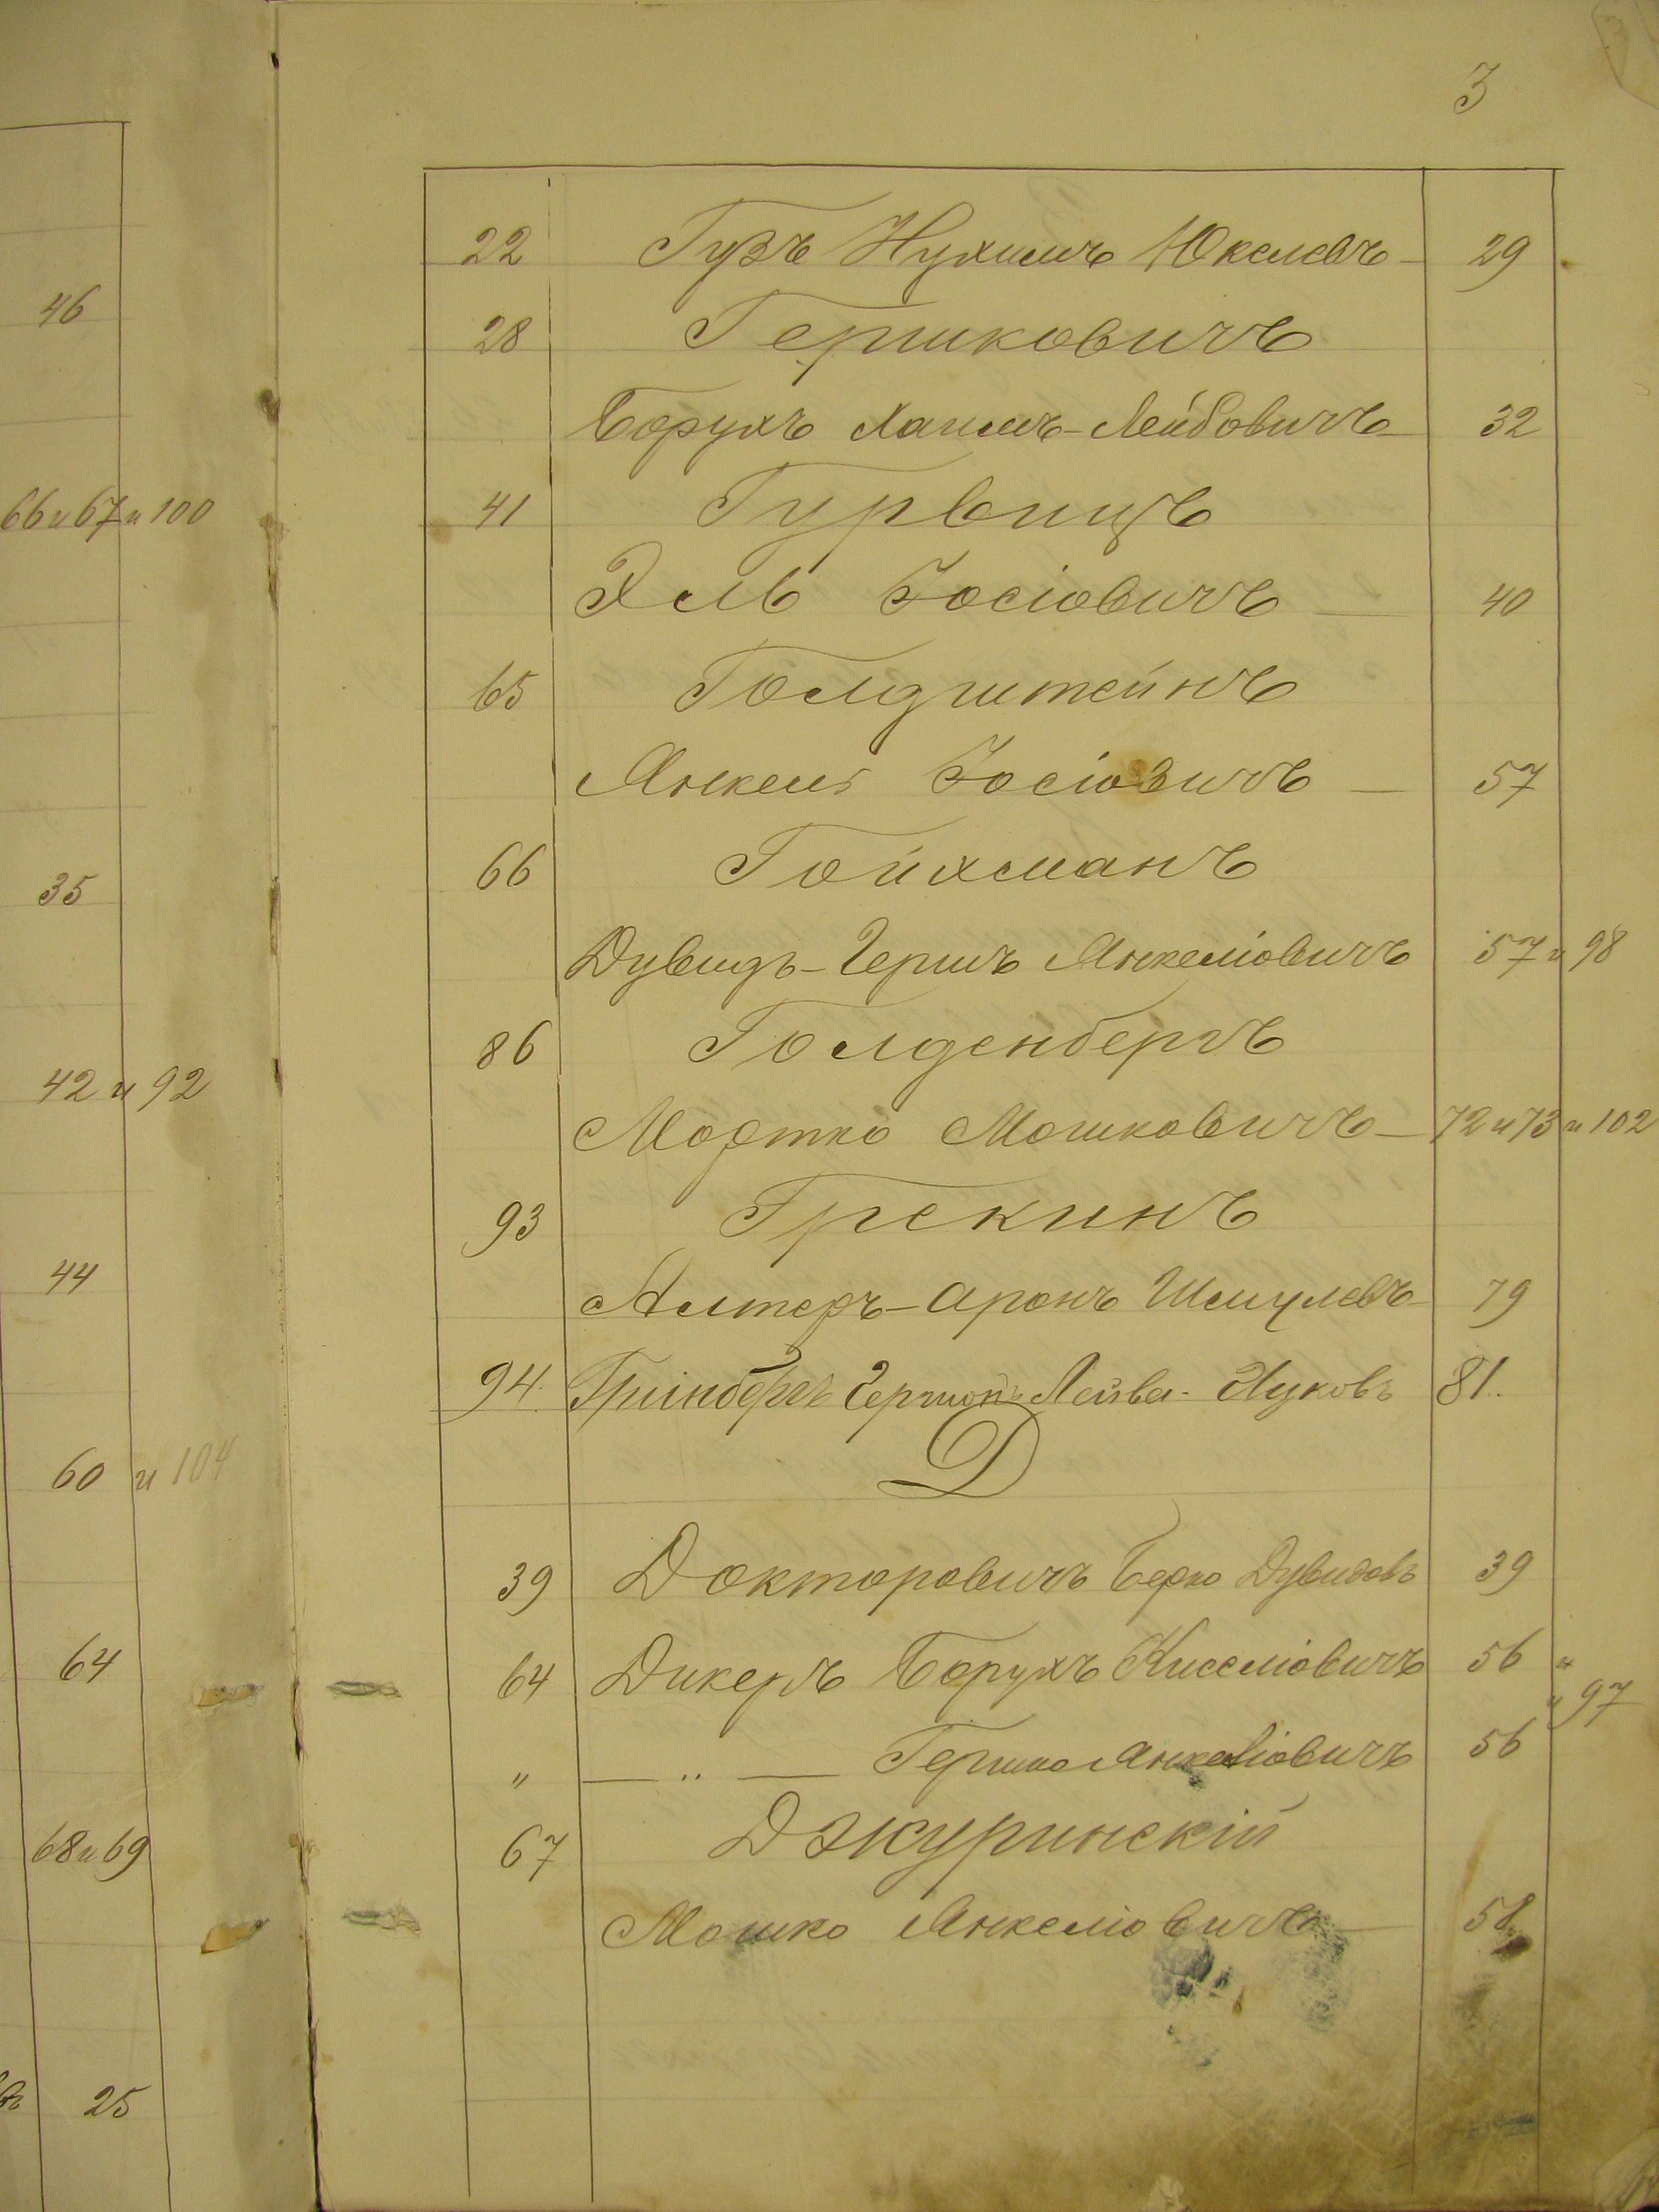 46
66 и 67 и 100
35
42 и 92
44
60 и 104
64
68 и 69
25
3
22 Гузъ Нухимъ Юкелевъ 29
28 Гершковичъ
Борухъ Хаимъ-Лейбовичъ 32
41 Гурвицъ
Эль Іосіовичъ 40
65 Голдштейнъ
Янкель Іосіовичъ 57
66 Гойхманъ
Дувидъ-Гершъ Янкеліовичъ 57 и 98
86 Голденбергъ
Мортко Мошковичъ 72 и 73 и 102
93 Грекинъ
Алтеръ-Аронъ Шмулевъ 79
94. Грінбергъ Гершон Лейва- 81.
Д
39 Докторовичъ Берко Дувидовъ 39
64 Дикеръ Борухъ Киселіовичъ 56 и
и 97
" — " — Гершко Янкеліовичъ 56
67 Джуринскій
Мошко Янкеліовичъ 58